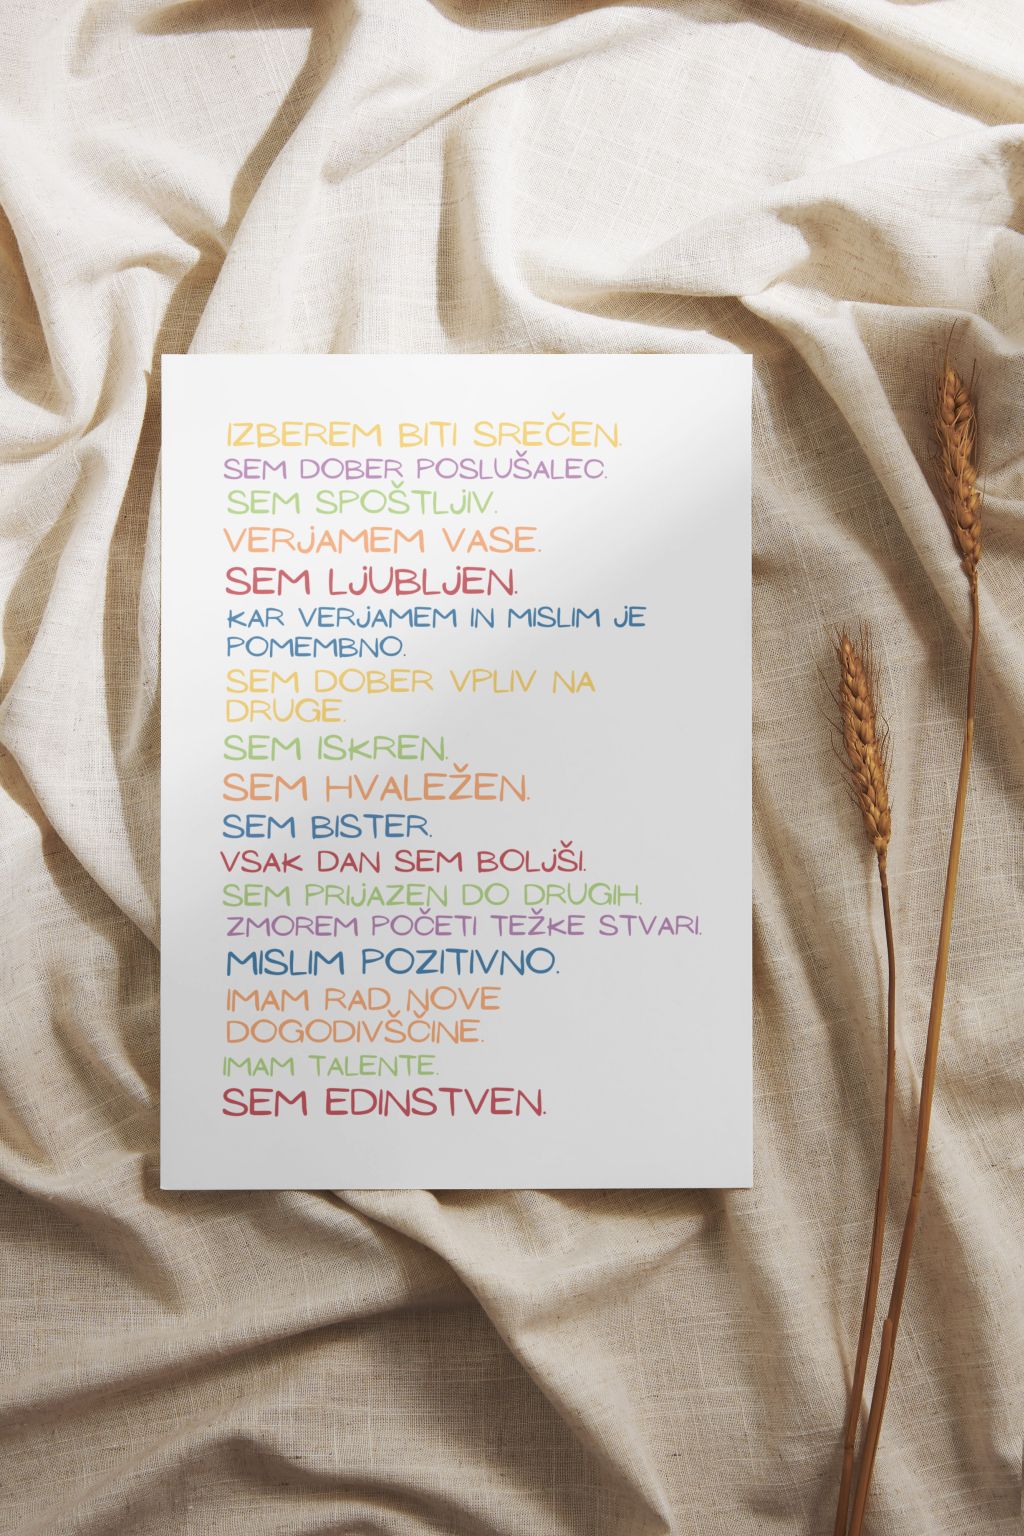 IZBEREM BITI SREČEN.
SEM DOBER POSLUŠALEC.
SEM SPOŠTLJIV.
VERJAMEM VASE.
SEM LJUBLJEN.
KAR VERJAMEM IN MISLIM JE
POMEMBNO.
SEM DOBER VPLIV NA
DRUGE.
SEM ISKREN.
SEM HVALEŽEN.
SEM BISTER.
VSAK DAN SEM BOLJŠI.
SEM PRIJAZEN DO DRUGIH.
ZMOREM POČETI TEŽKE STVARI.
MISLIM POZITIVNO.
IMAM RAD NOVE
DOGODIVŠČINE.
IMAM TALENTE.
SEM EDINSTVEN.